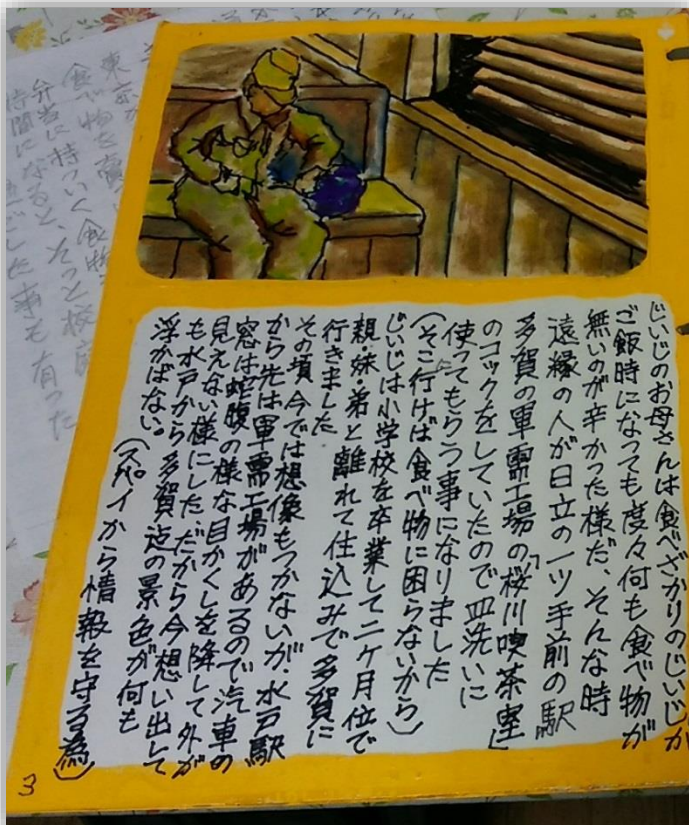 じいじのお母さんは食べざかりのじいじが
ご飯時になっても度々何も食べ物が
無いのが辛かった様だ、そんな時
遠縁の人が日立の一ツ手前の駅
多賀の軍需工場の「桜川喫茶室」
のコックをしていたので皿洗いに
使ってもらう事になりました
(そこ行けば食べ物に困らないから)
じいじは小学校を卒業して二ヶ月位で
親・妹・弟と離れて仕込みで多賀に
行きました
その頃今では想像もつかないが、水戸駅
から先は軍需工場があるので汽車の
窓は蛇腹の様な目かくしを降して外が
見えない様にした、だから今想い出して
も水戸から多賀迄の景色が何も
浮かばない。
(スパイから情報を守る為)
3
東京
食べ物を
弁当に持っていく
時間になると、そっと校庭
事も有った